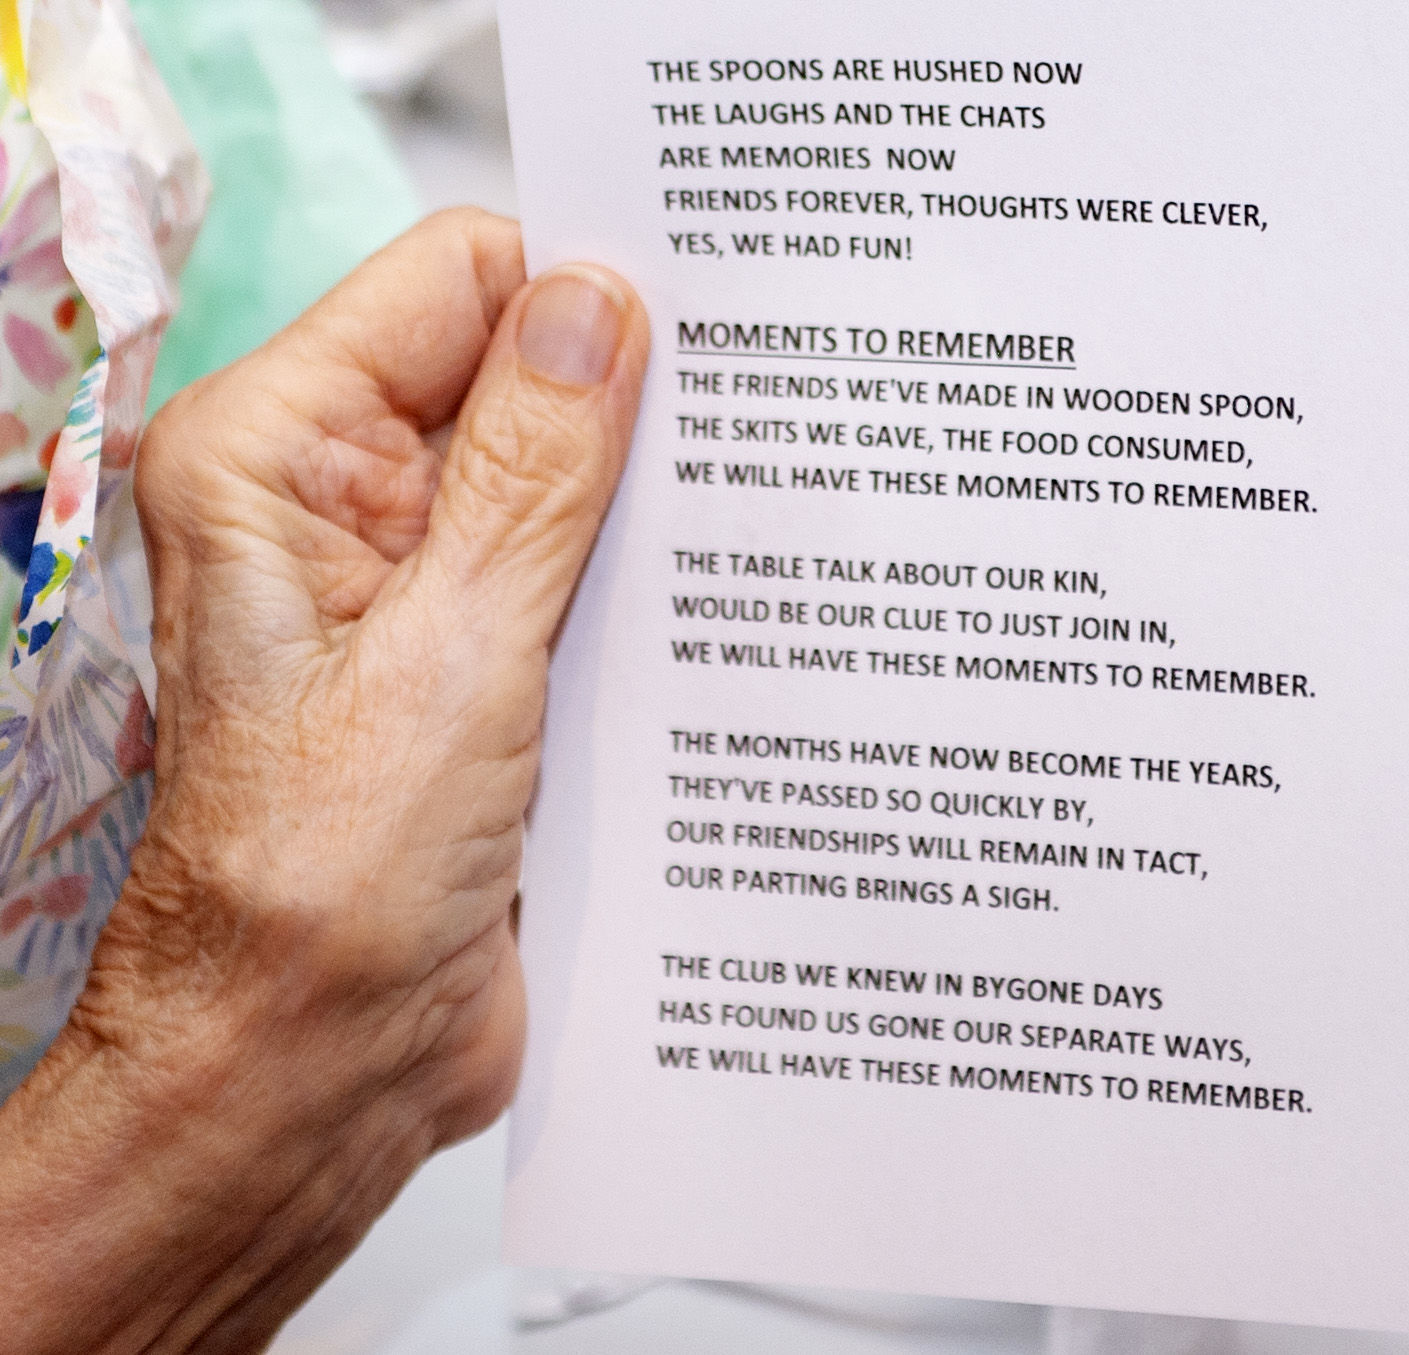 THE SPOONS ARE HUSHED NOW
THE LAUGHS AND THE CHATS
ARE MEMORIES NOW
FRIENDS FOREVER, THOUGHTS WERE CLEVER,
YES, WE HAD FUN!
MOMENTS TO REMEMBER
THE FRIENDS WE'VE MADE IN WOODEN SPOON,
THE SKITS WE GAVE, THE FOOD CONSUMED,
WE WILL HAVE THESE MOMENTS TO REMEMBER.
THE TABLE TALK ABOUT OUR KIN,
WOULD BE OUR CLUE TO JUST JOIN IN,
WE WILL HAVE THESE MOMENTS TO REMEMBER.
THE MONTHS HAVE NOW BECOME THE YEARS,
THEY'VE PASSED SO QUICKLY BY,
OUR FRIENDSHIPS WILL REMAIN IN TACT,
OUR PARTING BRINGS A SIGH.
THE CLUB WE KNEW IN BYGONE DAYS
HAS FOUND US GONE OUR SEPARATE WAYS,
WE WILL HAVE THESE MOMENTS TO REMEMBER.